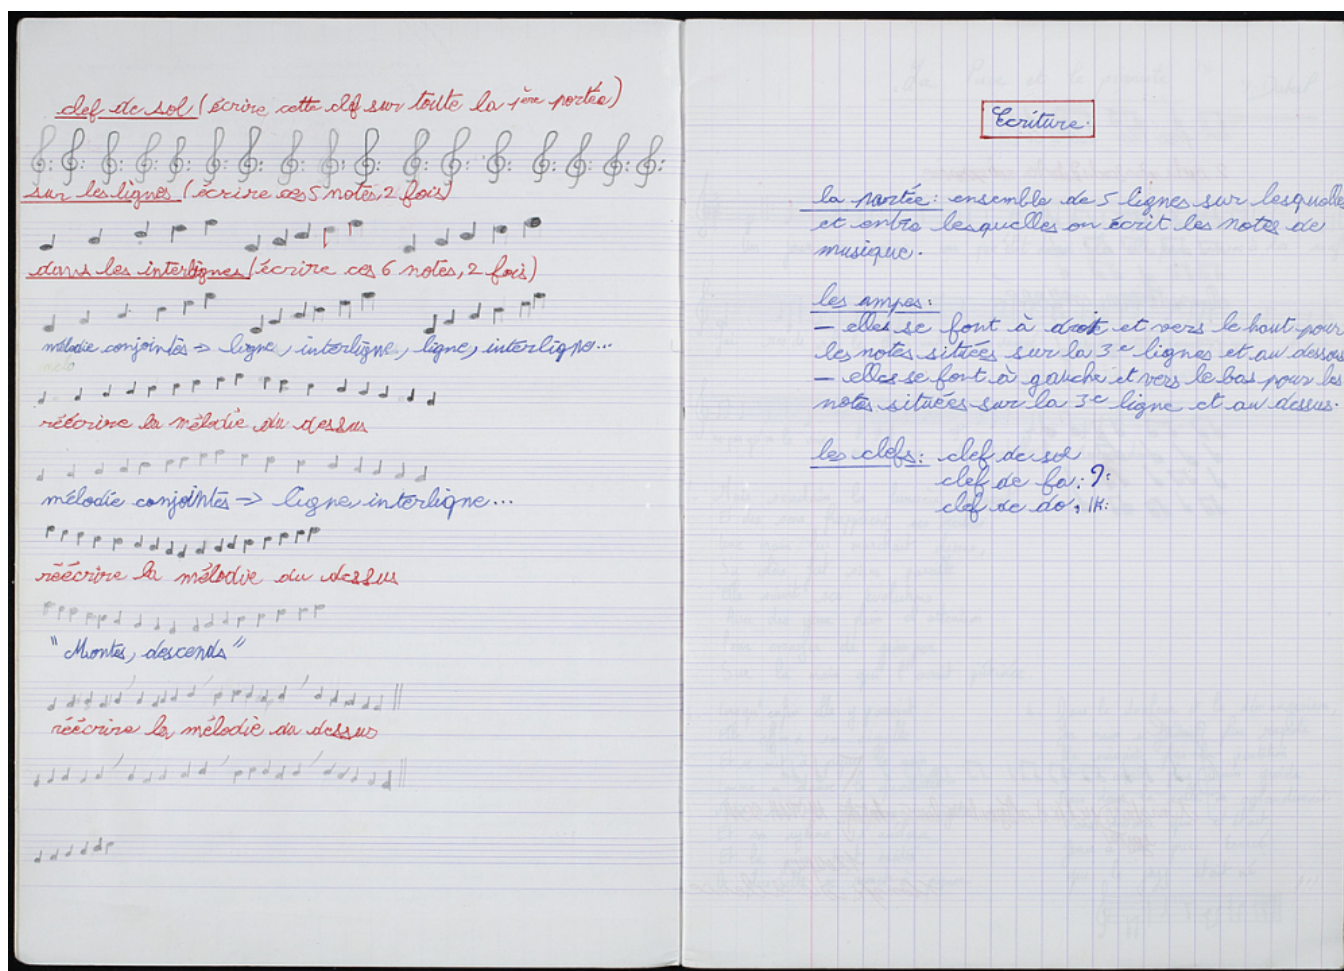 clef de sol (écrire cette clef sur toute la 1ère portée)
sur les lignes (écrire ces 5 notes, 2 fois)
dans les interlignes (écrire ces 6 notes, 2 fois)
mélodie conjointes => ligne, interligne, ligne, interligne...
réécrire la mélodie du dessus
mélodie conjointes => ligne interligne...
réécrire la mélodie du dessus
"Montes, descends"
réécrire la mélodie du dessus
Ecriture.
la portée: ensemble de 5 lignes sur lesquelles
et entre lesquelles on écrit les notes de
musique.
les ampes:
- elles se font à droite et vers le haut pour
les notes situées sur la 3e lignes et au dessous
- elles se font à gauche et vers le bas pour les
notes situées sur la 3e ligne et au dessus.
les clefs: clef de sol
clef de fa:
clef de do,